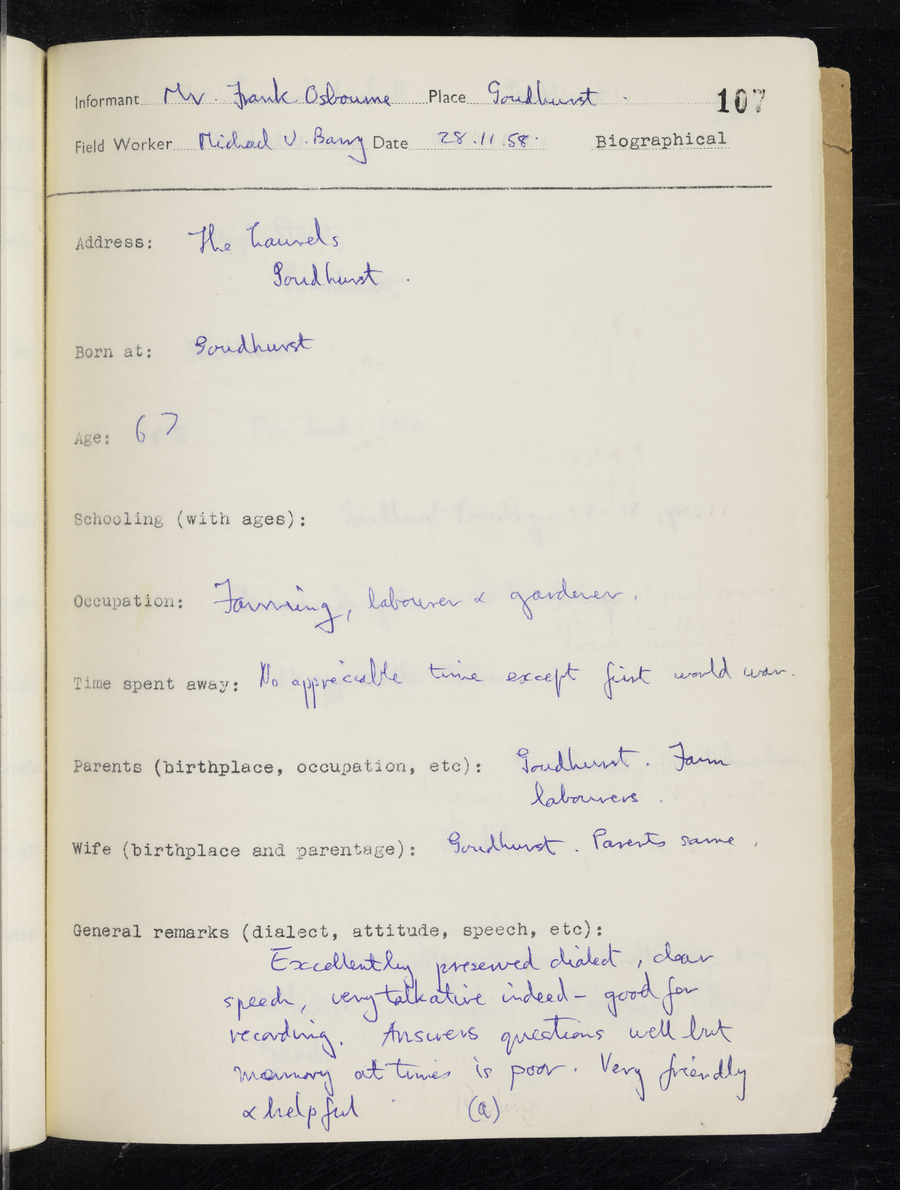 Informant Mr. Frank Osbourne Place Goudhurst. 107
Field Worker Michael V. Barry Date 28.11.58. Biographical
Address: The Laurels
Goudhurst.
Born at: Goudhurst
Age: 67
Schooling (with ages):
Occupation: Farming, labourer & gardener.
Time spent away: No appreciable time except first world war.
Parents (birthplace, occupation, etc): Goudhurst. Farm
labourers.
Wife (birthplace and parentage): Goudhurst. Parents same.
General remarks (dialect, attitude, speech, etc):
Excellently preserved dialect, clear
speech, very talkative indeed - good for
recording. Answers questions well but
memory at times is poor. Very friendly
& helpful. (a)